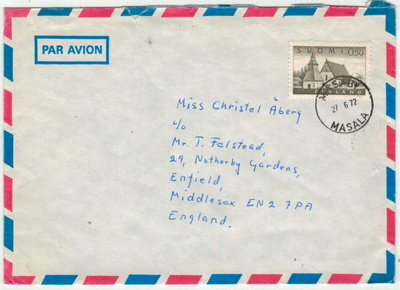 PAR AVION
SUOMI 0,50
FINLAND
MASABY
27. 6. 72
MASALA
Miss Christel Åberg
c/o
Mr. T. Felstead,
29, Netherby Gardens,
Enfield,
Middlesex EN2 7PA
England.